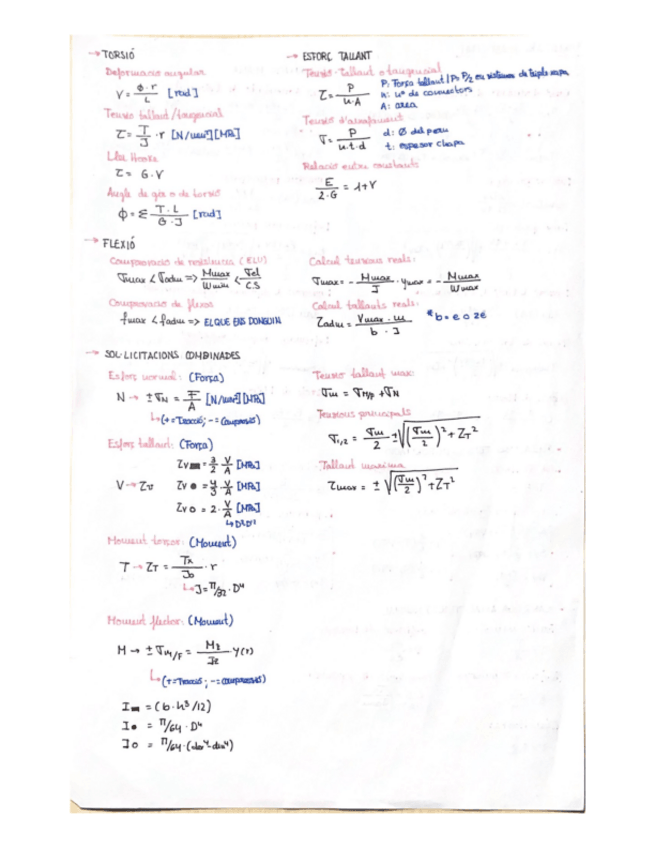 → TORSIÓ
Deformació angular
γ = Φ·r / L [rad]
Tensió tallant/tangencial
τ = T/J · r [N/mm²][MPa]
Llei Hooke
τ = G·γ
Angle de gir o de torsió
Φ = Σ T·L / G·J [rad]
→ ESFORÇ TALLANT
Tensió tallant o tangencial
τ = P / n·A
P: Força tallant / P o P/2 en sistemes de triple xapa
n: nº de connectors
A: area
Tensió d'aixafament
σ = P / n·t·d
d: Ø del pern
t: espesor chapa
Relació entre constants
E / 2·G = 1+ν
→ FLEXIÓ
Comprovació de resistencia (ELU)
σmax < σadm => Mmax / Wmin < σel / C.S
Comprovació de flexos
fmax < fadm => EL QUE ENS DONGUIN
Calcul tensions reals:
σmax = - Mmax / I · ymax = - Mmax / Wmax
Calcul tallants reals:
τadm = Vmax · m / b · I
*b = e o 2e
→ SOL·LICITACIONS COMBINADES
Esforç normal: (Força)
N → ± σN = F/A [N/mm²][MPa]
↳ (+ = Tracció; - = Compressió)
Esforç tallant: (Força)
τv ▬ = 3/2 · V/A [MPa]
V → τv
τv ● = 4/3 · V/A [MPa]
τv o = 2 · V/A [MPa]
↳ D²d²
Moment torsor: (Moment)
T → τT = Tx / Jo · r
↳ J = π/32 · D⁴
Moment flector: (Moment)
M → ± σM/F = Mz / Iz · y(r)
↳ (+ = Tracció; - = Compressió)
I ▬ = (b·h³/12)
I ● = π/64 · D⁴
I o = π/64 · (dex⁴-din⁴)
Tensió tallant max:
σm = σM/F + σN
Tensions principals
σ1,2 = σm / 2 ± √((σm / 2)² + τT²
Tallant màxima
τmax = ± √((σm / 2)² + τT²